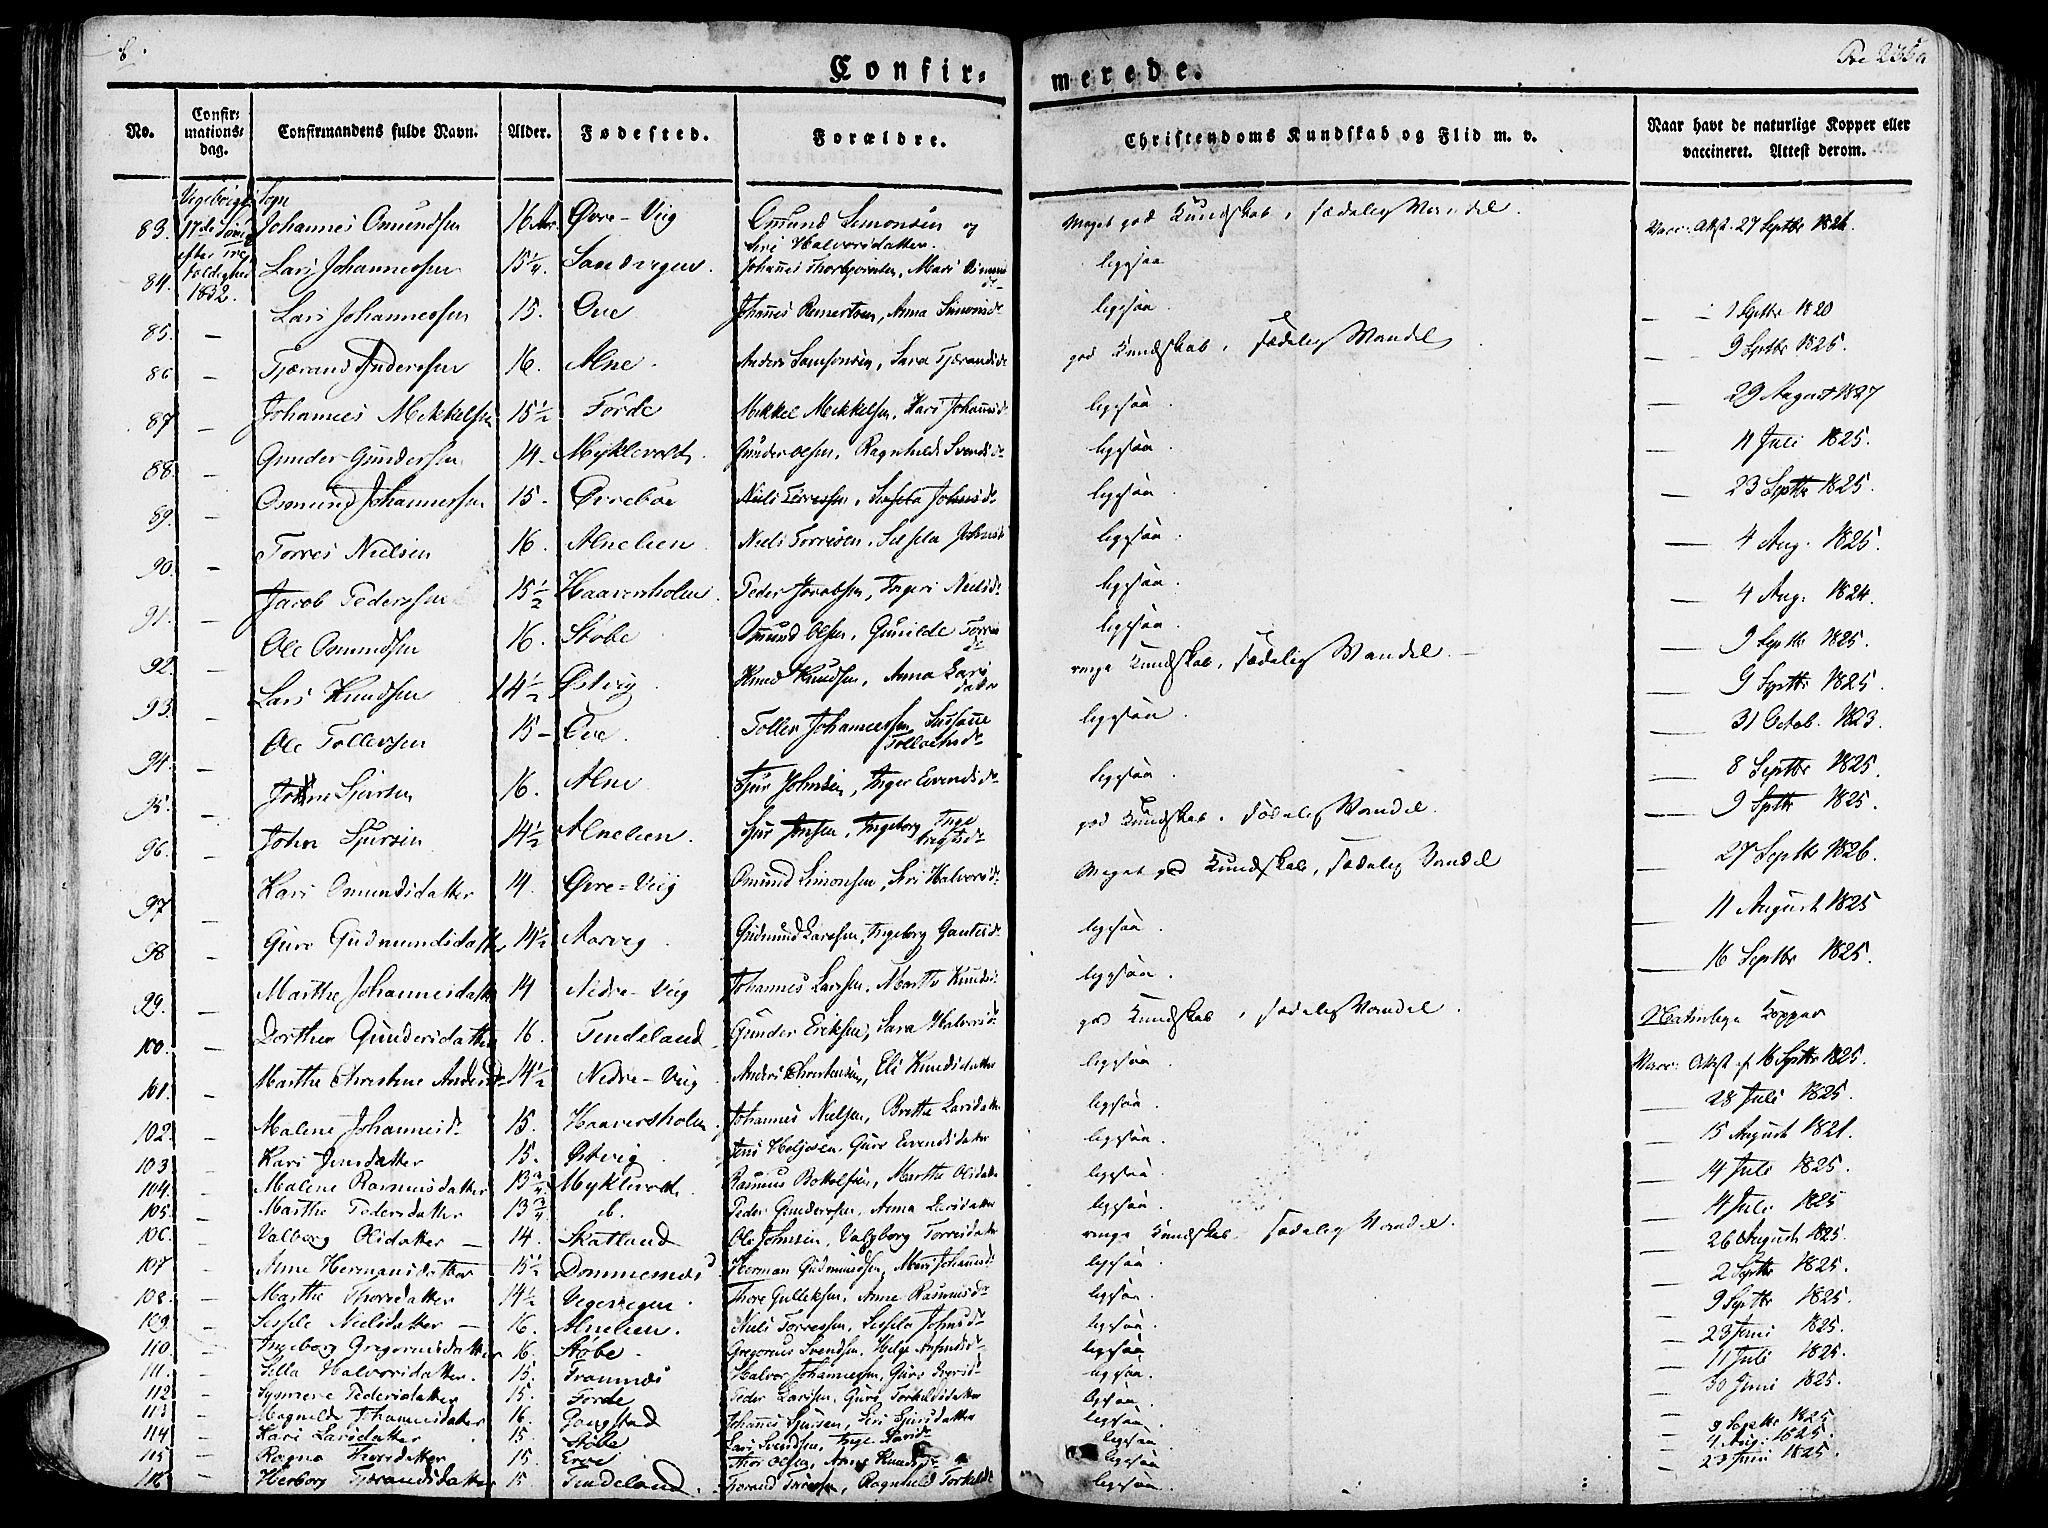 Confir-
merede.
No.
Confir-
mations-
dag.
Confirmandens fulde Navn.
Alder.
Fødested.
Forældre.
Christendoms Kundskab og Flid m. v.
Naar havt de naturlige Kopper eller
vaccineret. Attest derom.
Sogn
83. 17de Johannes Omundsen 16 Øvre-Viig Omund Simonsen og Meget god Kundskab, sædelig Vandel. Vacc: Attst. 27 Septbr 1826.
efter Siri Halvorsdatter.
84. 1832. Lars Johannessen 15¼ Sandvigen. Johañes Thorbjørnsen, Mari ligesaa
85. — Lars Johannessen 15. Ove Johañes Reinertsen, Anna Simonsdr ligesaa. — 1 Septbr 1820
86 — Tjærand Andersen 16. Alne. Anders Samsonsen, Sara Tjærandsdr god Kundskab, sædelig Vandel. — 9 Septbr 1825.
87 — Johannes Mekkelsen 15½ Førde Mekkel Mekkelsen, Kari Johañesdr ligesaa. — 29 August 1827
88. — Gunder Gundersen 14. Myklevold. Gunder Olsen, Ragnhild Svendsdr ligesaa. — 11 Juli 1825.
89. — Osmund Johannessen 15. Ørrebøe Niels Torressen, Sissela Johnsdr ligesaa. — 23 Septbr 1825.
90. — Torres Nielsen 16. Alnelien Niels Torresen, Sissela Johnsdr ligesaa. — 4 Aug. 1825.
91. — Jacob Pedersen 15½ Haaversholm. Peder Jacobsen, Ingeri Nielsdr ligesaa. — 4 Aug: 1824.
92. — Ole Omundsen 16. Støbe Omund Olsen, Gunilde Torresdr ligesaa. — 9 Septbr 1825.
93. — Lars Knudsen 14½ Østvig Knud Knudsen, Anna Larsdatter ringe Kundskab, sædelig Vandel. — 9 Septbr 1825.
94. — Ole Tollefsen 15 — Ove. Tollev Johannessen, Susañe ligesaa. — 31 Octob. 1823.
95. — Sjursen 16. Alne Sjur Johnsen, Inger Evendsdr ligesaa. — 8 Septbr 1825.
96. — John Sjursen 14½ Alnelien. Sjur Jensen, Ingeborg god Kundskab, sædelig Vandel. — 9 Septbr 1825.
97. — Kari Omundsdatter 14. Øvre-Viig Omund Simonsen, Siri Halvorsdr Meget god Kundskab, sædelig Vandel — 27 Septbr 1826.
98 — Guro Gudmundsdatter 14½ Aarvig. Gudmund Larsen, Ingeborg Gautesdr ligesaa. — 11 August 1825
99. — Marthe Johannesdatter 14 Nedre-Viig Johannes Larsen, Marthe Knudsdr ligesaa. — 16 Septbr 1825.
100. — Dorthea Gundersdatter 16. Tendeland Gunder Eriksen, Sara Halvorsdr god Kundskab, sædelig Vandel. Naturlige Kopper
101. — Marthe Christine Andersdr 14½ Nedre-Viig Anders Christensen, Eli Knudsdatter ligesaa. Vacc: Attst af 16 Septbr 1825.
102. — Malene Johannesdr 15. Haaversholm Johannes Nielsen, Brethe Larsdatter ligesaa. — 28 Juli 1825.
103. — Kari Jensdatter 15. Østvig. Jens Guro Evendsdatter ligesaa. — 15 August 1821.
104. — Malene Rasmusdatter 13¾ Myklevold. Rasmus Bottolfsen, Marthe Olsdatter ligesaa. — 14 Juli 1825.
105. — Marthe Pedersdatter 13¾ d. Peder Gundersen, Anna Larsdatter ligesaa. — 14 Juli 1825
106. — Valborg Olsdatter — 14. Skatland Ole Johnsen, Valgborg Torresdatter ringe Kundskab, sædelig Vandel. — 26 August 1825.
107 — Anne Hermansdatter 15½ Dommesnæs Herman Gudmundsen, Mari Johañesdr ligesaa. — 2 Septbr 1825.
108. — Marthe Thoresdatter 14½ Vegevigen. Thore Gulleksen, Anne Rasmusdr ligesaa. — 9 Septbr 1825.
109 — Sissele Nielsdatter — 16. Alnelien. Niels Torressen, Sissela Johnsdr ligesaa. — 23 Juni 1825.
110. — Ingeborg Gregoriusdatter 16 Støbe. Gregorius Svendsen, Helge ligesaa — 11 Juli 1825.
111. — Silla Halvorsdatter. 15. Framnæs Halvor Johannessen, Guro ligesaa. — 30 Juni 1825.
112 — Pedersdatter 15. Førde Peder Larsen, Guro Torkildsdatter ligesaa.
113 — Magnild Johannesdatter 16. Johañes Sjursen, Siri Sjursdatter ligesaa. — 9 Septbr 1825
114 — Kari Larsdatter 15. Støbe Lars Svendsen, Inge Larsdr ligesaa. — 4 Aug. 1825.
115 — Ragna Thorsdatter 15. Thor Olsen, Anne Knudsdr ligesaa. — 23 Juni 1825.
116 — Herborg Tjærandsdatter 15 Tendeland. Tjærand Ragnhild Torkildsdr ligesaa.